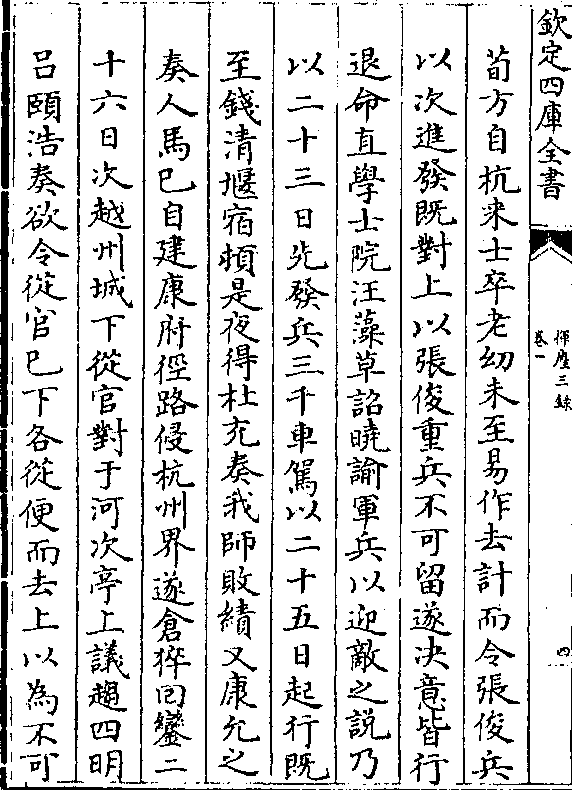 欽定四庫全書
揮麈三錄
卷一
四
荀方自杭来士卒老幼未至易作去計而令張俊兵
以次進發既對上以張俊重兵不可留遂決意皆行
退命直學士院汪藻草詔曉諭軍兵以迎敵之説乃
以二十三日先發兵三千車駕以二十五日起行既
至錢清堰宿頓是夜得杜充奏我師敗績又康允之
奏人馬已自建康府徑路侵杭州界遂倉猝囘鑾二
十六日次越州城下從官對于河次亭上議趨四明
吕頤浩奏欲令從官已下各從便而去上以為不可